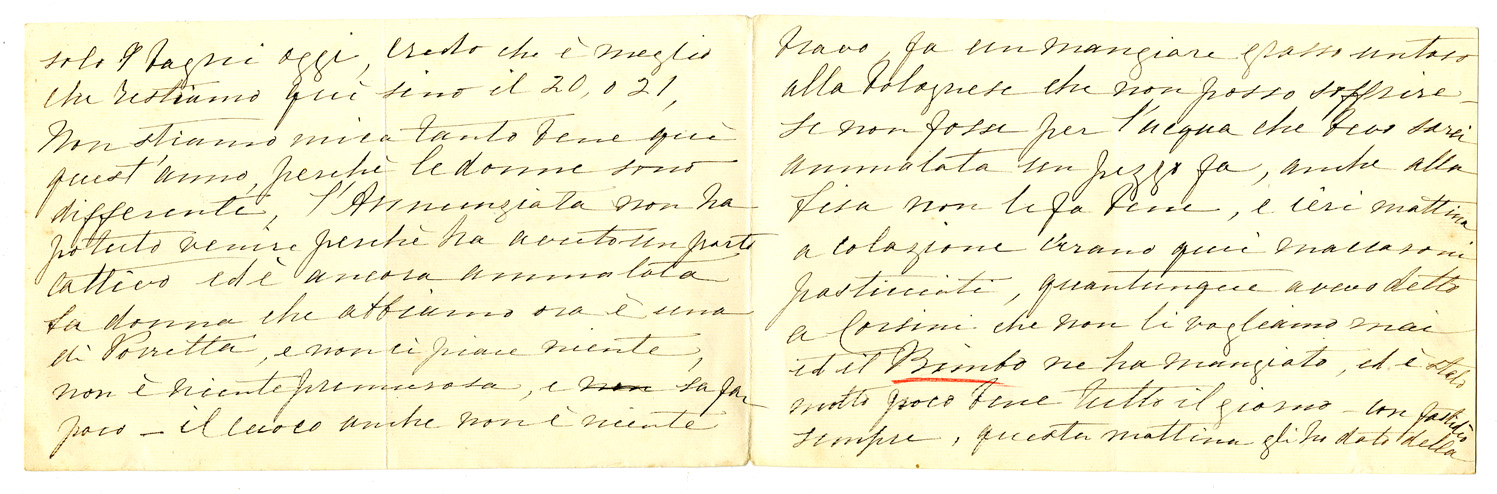 solo 9 bagni oggi, credo che è meglio
che restiamo quì sino il 20, o 21,
Non stiamo mica tanto bene quì
quest'anno, perchè le donne sono
differenti, l'Annunziata non ha
potuto venire perchè ha avuto un parto
cattivo ed è ancora ammalata
la donna che abbiamo ora è una
di Porretta, e non ci piace niente,
non è niente premurosa, e non sa far
poco – il cuoco anche non è niente
bravo, fa un mangiare grasso untoso
alla bolognese che non posso soffrire –
se non fosse per l'acqua che bevo sarei
ammalata un pezzo fa, anche alla
Lisa non le fa bene, e ieri mattina
a colazione c'erano quei maccaroni
pasticciati, quantunque avevo detto
a Corsini che non li vogliamo mai
ed il Bimbo ne ha mangiato, ed è stato
molto poco bene tutto il giorno – con fastidio
sempre, questa mattina gli ho dato della